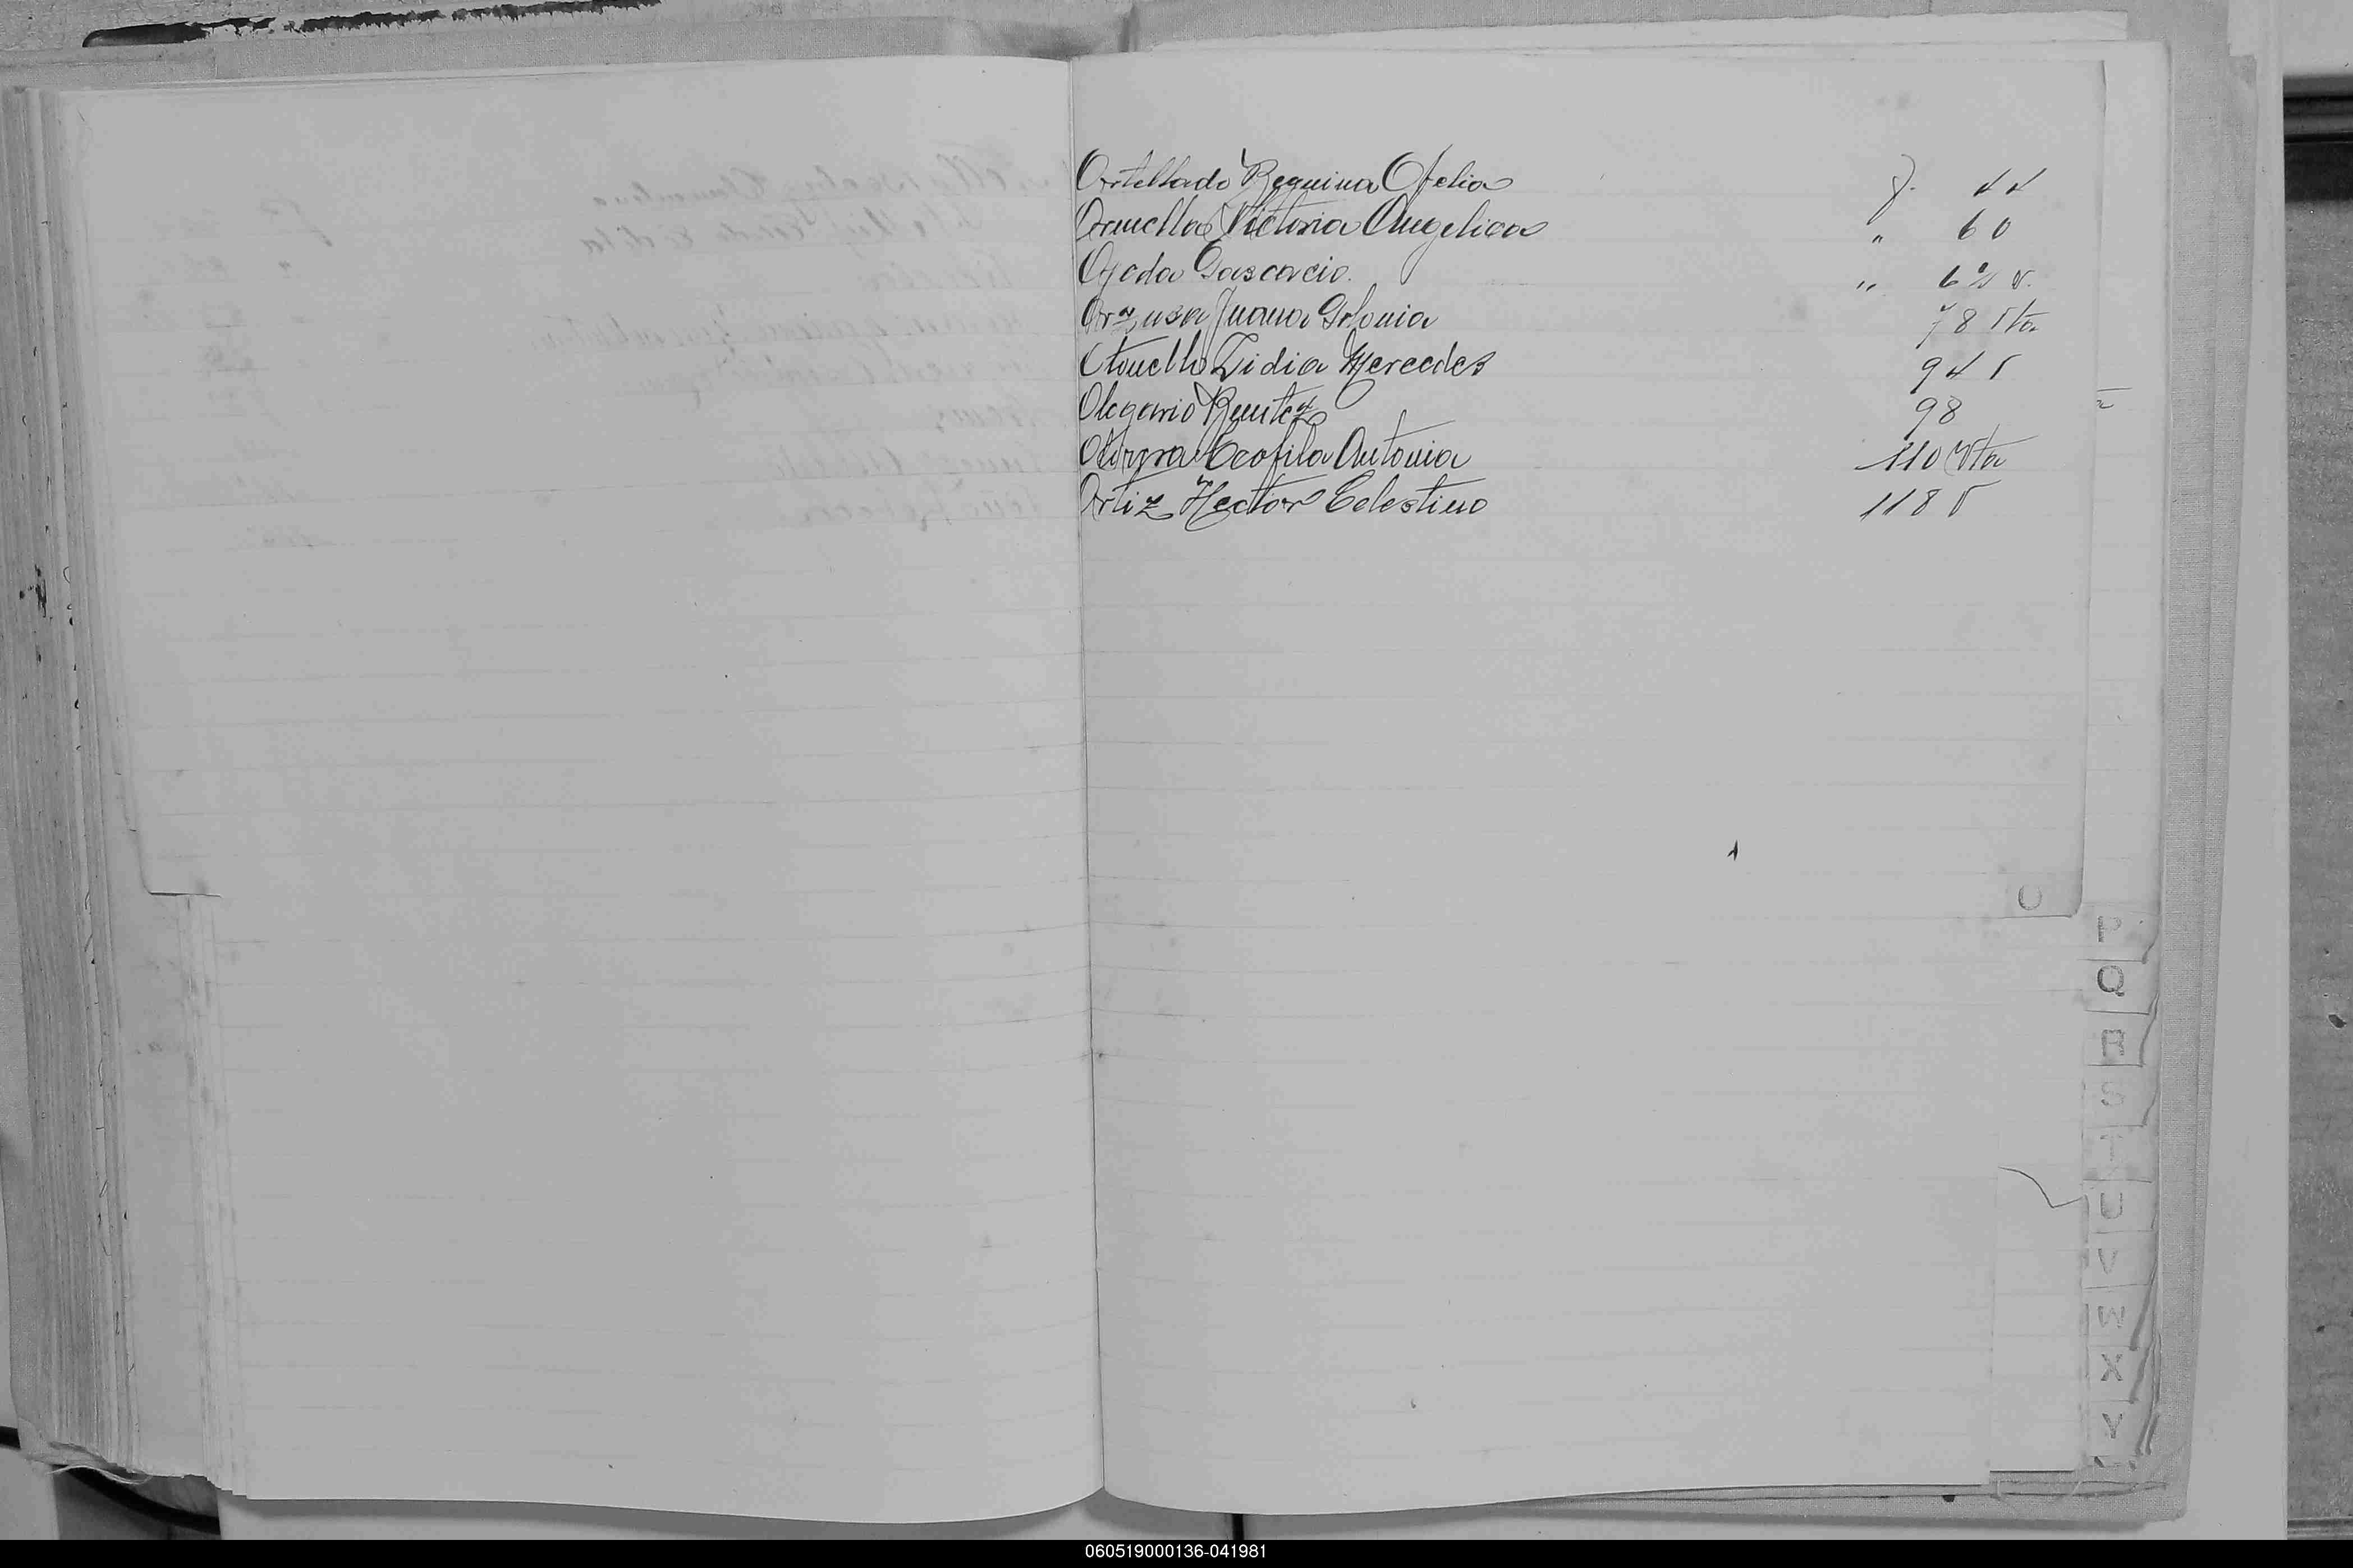 Ortellado Regina Ofelia f. 44
Ormella Victoria Angelica " 60
Ojeda Dascacio. " 62 v.
Juana 78 Vta
Otonello Lidia Mercedes 94 v
Olegario Benitez 98
Teofila Antonia 110 Vta
Ortiz Hector Celestino 118 v
O
P
Q
R
S
T
U
V
W
X
Y
060519000136-041981